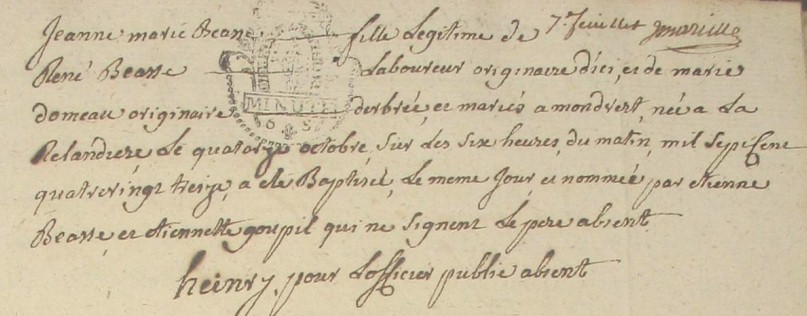 Jeanne marie Beasse fille Legitime de 7e feuillet
René Beasse Laboureur originaire d'ici, et de marie
domeau originaire derbrée, et mariés a mondvert, née a La
Relandiere Le quatorze octobre, sur Les six heures, du matin, mil sept Cent
quatrevingt treize, a eté Baptisée, Le meme Jour, et nommée par etienne
Beasse, et etiennette goupil qui ne signent Le pere absent
MINUTE
heinry, pour Lofficier public absent